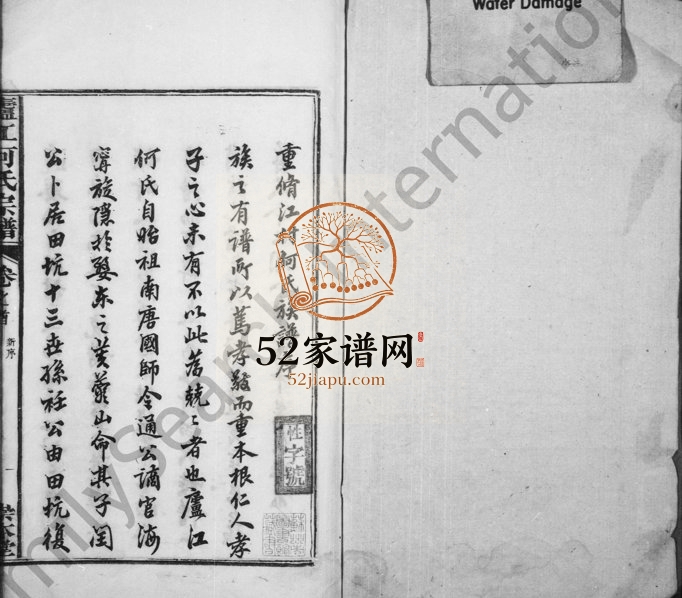 Water Damage
重脩江村何氏族譜序
族之有譜所以篤孝發而重本根仁人孝
子之心未有不以此為兢〻者也廬江
何氏自始祖南唐國師令通公謫官海
甯旋隱於婺東之芙蓉山命其子閏
公卜居田坑十三世孫社公由田坑復
廬江何氏宗譜
卷之首
新序
一
性字號
52家谱网
52jiapu.com
FamilySearch International